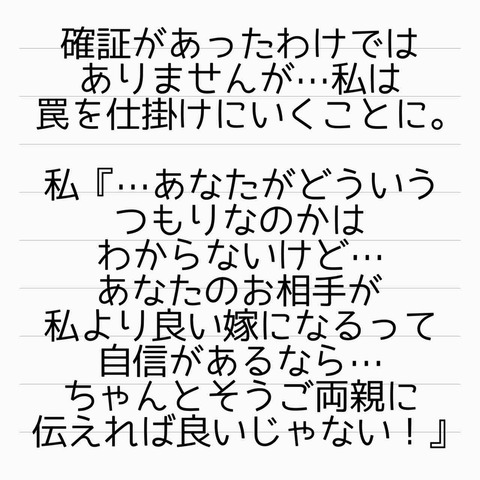 確証があったわけでは
ありませんが…私は
罠を仕掛けにいくことに。
私『…あなたがどういう
つもりなのかは
わからないけど…
あなたのお相手が
私より良い嫁になるって
自信があるなら…
ちゃんとそうご両親に
伝えれば良いじゃない！』